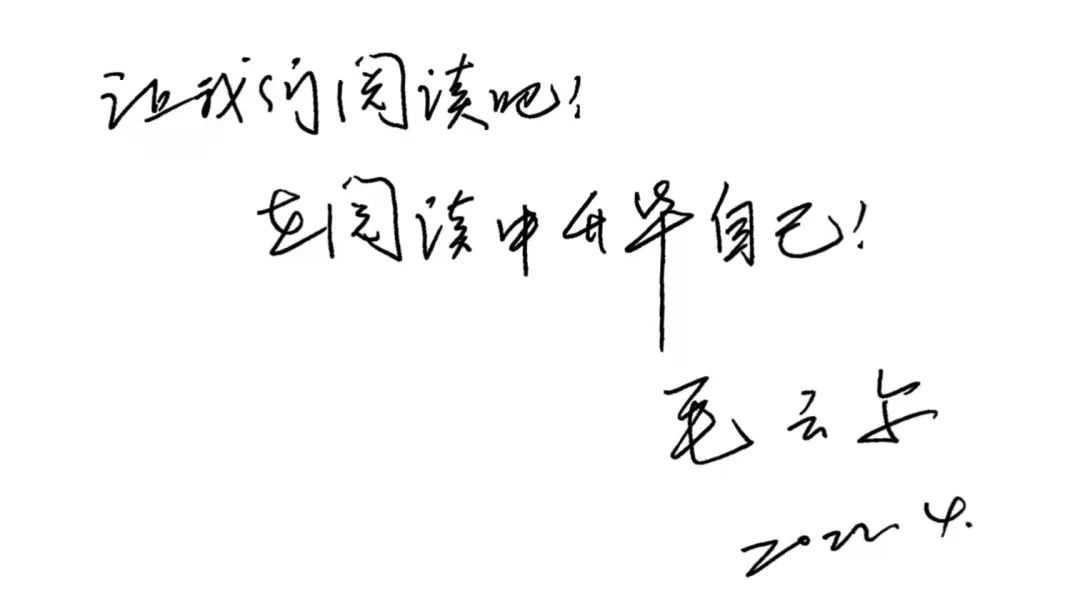 让我们阅读吧！
在阅读中升华自己！
毛云尔
2022.4.